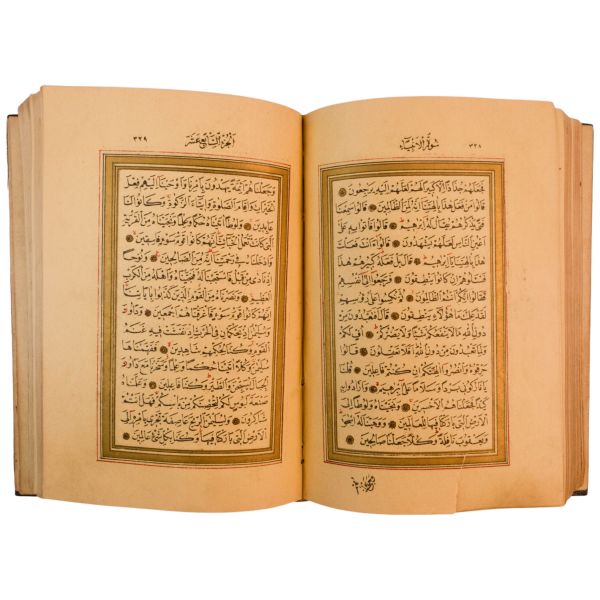 ٣٢٨ سُورَةُ الْاَنْبِيَاءِ
فَجَعَلَهُمْ جُذَاذًا اِلَّا كَبِيرًا لَهُمْ لَعَلَّهُمْ اِلَيْهِ يَرْجِعُونَ
قَالُوا مَنْ فَعَلَ هٰذَا بِاٰلِهَتِنَا اِنَّهُ لَمِنَ الظَّالِمِينَ قَالُوا سَمِعْنَا
فَتًى يَذْكُرُهُمْ يُقَالُ لَهُ اِبْرٰهِيمُ قَالُوا فَأْتُوا بِهِ عَلٰى
اَعْيُنِ النَّاسِ لَعَلَّهُمْ يَشْهَدُونَ قَالُوا ءَاَنْتَ فَعَلْتَ
هٰذَا بِاٰلِهَتِنَا يَا اِبْرٰهِيمُ قَالَ بَلْ فَعَلَهُ كَبِيرُهُمْ هٰذَا
فَسْـَٔلُوهُمْ اِنْ كَانُوا يَنْطِقُونَ فَرَجَعُوا اِلٰى اَنْفُسِهِمْ
فَقَالُوا اِنَّكُمْ اَنْتُمُ الظَّالِمُونَ ثُمَّ نُكِسُوا عَلٰى رُؤُسِهِمْ
لَقَدْ عَلِمْتَ مَا هٰؤُلَاءِ يَنْطِقُونَ قَالَ اَفَتَعْبُدُونَ مِنْ
دُونِ اللّٰهِ مَا لَا يَنْفَعُكُمْ شَيْئًا وَلَا يَضُرُّكُمْ اُفٍّ لَكُمْ
وَلِمَا تَعْبُدُونَ مِنْ دُونِ اللّٰهِ اَفَلَا تَعْقِلُونَ قَالُوا
حَرِّقُوهُ وَانْصُرُوا اٰلِهَتَكُمْ اِنْ كُنْتُمْ فَاعِلِينَ قُلْنَا
يَا نَارُ كُونِي بَرْدًا وَسَلَامًا عَلٰى اِبْرٰهِيمَ وَاَرَادُوا بِهِ
كَيْدًا فَجَعَلْنَاهُمُ الْاَخْسَرِينَ وَنَجَّيْنَاهُ وَلُوطًا اِلَى
الْاَرْضِ الَّتِي بَارَكْنَا فِيهَا لِلْعَالَمِينَ وَوَهَبْنَا لَهُ اِسْحٰقَ
وَيَعْقُوبَ نَافِلَةً وَكُلًّا جَعَلْنَا صَالِحِينَ
اَلْجُزْءُ السَّابِعُ عَشَرَ ٣٢٩
وَجَعَلْنَاهُمْ اَئِمَّةً يَهْدُونَ بِاَمْرِنَا وَاَوْحَيْنَا اِلَيْهِمْ فِعْلَ
الْخَيْرَاتِ وَاِقَامَ الصَّلٰوةِ وَاِيتَاءَ الزَّكٰوةِ وَكَانُوا لَنَا
عَابِدِينَ وَلُوطًا اٰتَيْنَاهُ حُكْمًا وَعِلْمًا وَنَجَّيْنَاهُ مِنَ الْقَرْيَةِ
الَّتِي كَانَتْ تَعْمَلُ الْخَبَائِثَ اِنَّهُمْ كَانُوا قَوْمَ سَوْءٍ فَاسِقِينَ
وَاَدْخَلْنَاهُ فِي رَحْمَتِنَا اِنَّهُ مِنَ الصَّالِحِينَ وَنُوحًا
اِذْ نَادٰى مِنْ قَبْلُ فَاسْتَجَبْنَا لَهُ فَنَجَّيْنَاهُ وَاَهْلَهُ مِنَ الْكَرْبِ
الْعَظِيمِ وَنَصَرْنَاهُ مِنَ الْقَوْمِ الَّذِينَ كَذَّبُوا بِاٰيَاتِنَا
اِنَّهُمْ كَانُوا قَوْمَ سَوْءٍ فَاَغْرَقْنَاهُمْ اَجْمَعِينَ وَدَاوُدَ
وَسُلَيْمٰنَ اِذْ يَحْكُمَانِ فِي الْحَرْثِ اِذْ نَفَشَتْ فِيهِ غَنَمُ
الْقَوْمِ وَكُنَّا لِحُكْمِهِمْ شَاهِدِينَ فَفَهَّمْنَاهَا
سُلَيْمٰنَ وَكُلًّا اٰتَيْنَا حُكْمًا وَعِلْمًا وَسَخَّرْنَا مَعَ دَاوُدَ
الْجِبَالَ يُسَبِّحْنَ وَالطَّيْرَ وَكُنَّا فَاعِلِينَ وَعَلَّمْنَاهُ
صَنْعَةَ لَبُوسٍ لَكُمْ لِتُحْصِنَكُمْ مِنْ بَأْسِكُمْ فَهَلْ اَنْتُمْ
شَاكِرُونَ وَلِسُلَيْمٰنَ الرِّيحَ عَاصِفَةً تَجْرِي بِاَمْرِهِ اِلَى
الْاَرْضِ الَّتِي بَارَكْنَا فِيهَا وَكُنَّا بِكُلِّ شَيْءٍ عَالِمِينَ